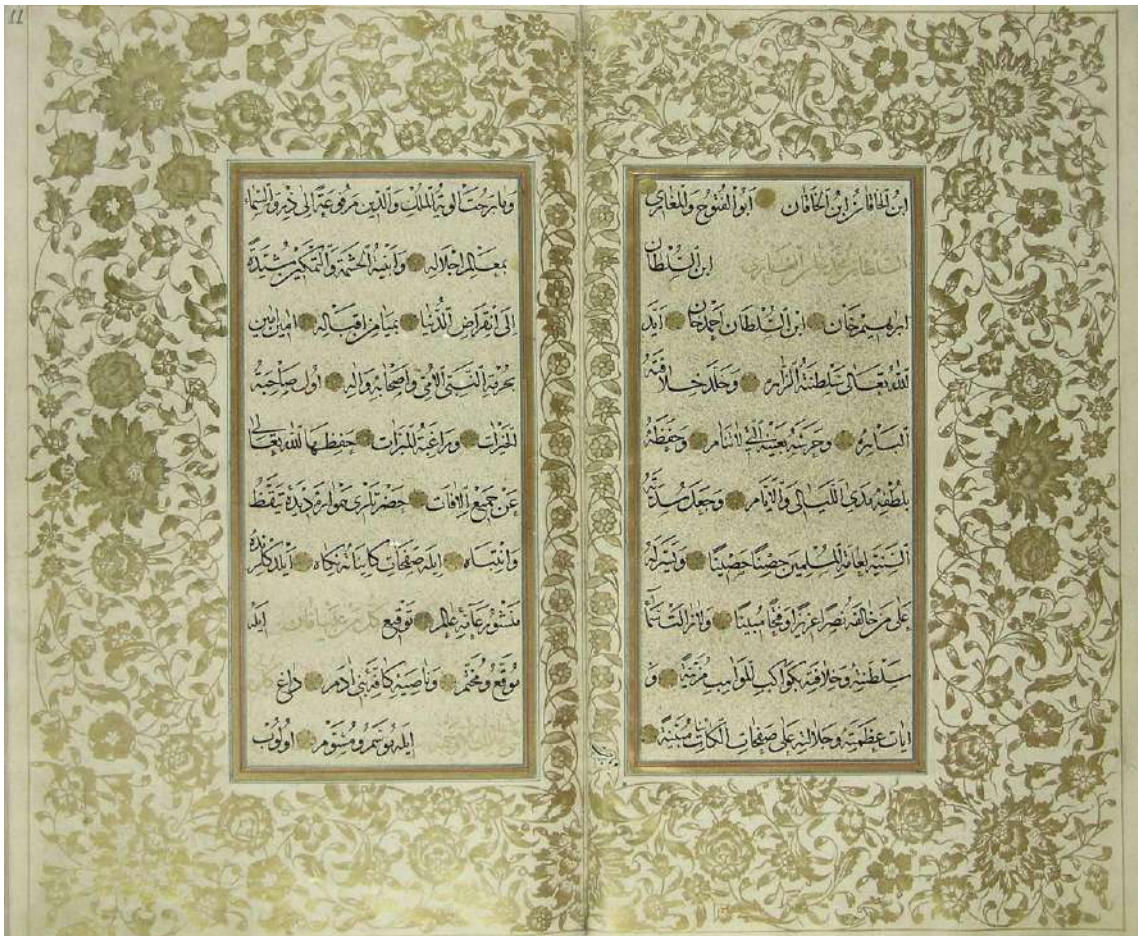 ابن الخاقان ابن الخاقان ابو الفتوح والمغازى
السلطان محمد خان الغازى ابن السلطان
ابرهيم خان ابن السلطان احمد خان ايد
الله تعالى سلطنته الزاهره وخلد خلافته
الباهره وحرسه بعينه التى لا تنام وحفظه
بلطفه مدى الليالى والايام وجعل سدته
السنية لعامة المسلمين حصنا حصينا ويسر له
على من خالفه نصرا عزيزا وفتحا مبينا ولا زالت سماء
سلطنته وخلافته بكواكب المواهب مزينة و
ايات عظمته وجلالته على صفحات الكائنات مبينة
وما برحت الوية الملك والدين مرفوعة الى ذروة السماء
بمعالم اجلاله وابنية الحشمة والتمكين مشيدة
الى انقراض الدنيا بميامن اقباله امين امين
بحرمة النبى الامى واصحابه واله اول صاحبة
الخيرات وراغبة المبرات حفظها الله تعالى
عن جميع الافات حضرتلرى همواره ديدهٔ تيقظ
وانتباه ايله صفحات كايناته نكاه ايلدكلرنده
منشور عامهٔ عالم توقيع كل من عليها فان ايله
موقع ومختم وناصيهٔ كافهٔ بنى ادم داغ
ايله موسم ومسوم اولوب
11